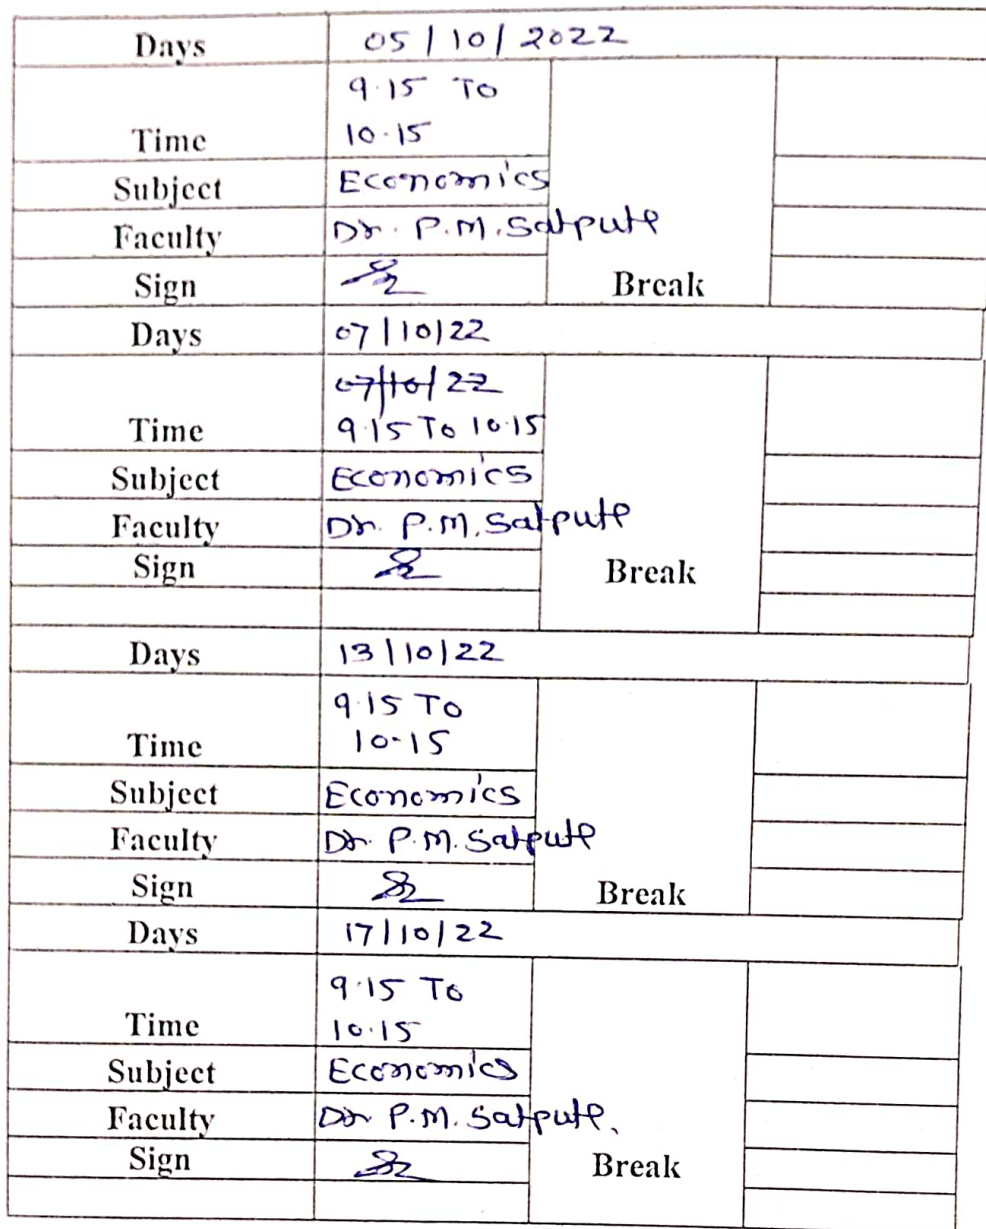 Days 05/10/2022
9.15 To
Time 10.15
Subject Economics
Faculty Dr. P.M. Satpute
Sign Break
Days 07/10/22
07/10/22
Time 9.15 To 10.15
Subject Economics
Faculty Dr. P.M. Satpute
Sign Break
Days 13/10/22
9.15 To
Time 10-15
Subject Economics
Faculty Dr. P.M. Satpute
Sign Break
Days 17/10/22
9.15 To
Time 10.15
Subject Economics
Faculty Dr P.M. Satpute.
Sign Break